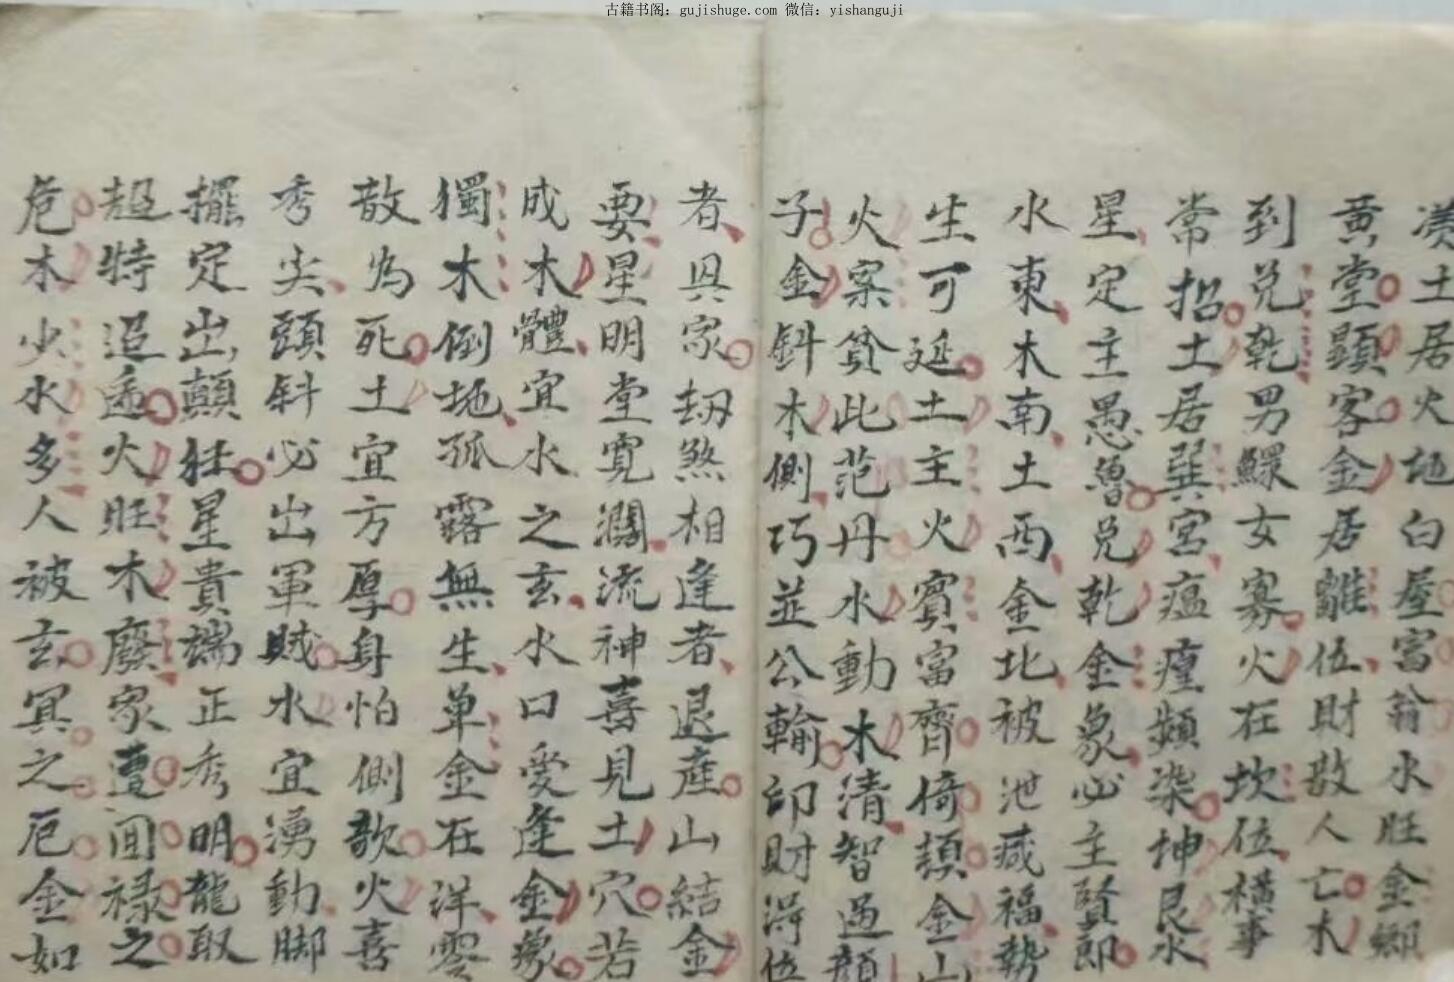 古籍书阁：gujishuge.com 微信：yishanguji
土居火地白屋富翁水旺金鄉
黄堂顕客金居離伍財散人亡木
到兑乾男鰥女寡火在坎位橫事
常招土居巽宮瘟瘽頻染坤艮水
星定主愚魯兑乾金象必主賢郎
水東木南土西金北被泄减福勢
生可延土主火賓富齊倚頓金山
火案贫此范丹水動木清智過顔
子金斜木側巧並公輸卯財得位
者具家刼煞相逢者退産山結金
要星明堂寛濶流神喜見土穴若
成木體宜水之玄水口愛逢金象
獨木倒地孤露無生单金在洋零
散为死土宜方厚身怕側欹火喜
秀尖頭斜必出軍贼水宜湧動脚
擺定出顛狂星貴端正秀明龍取
超特迢遥火旺木廢家遭囬禄之
危木少水多人被玄冥之厄金如